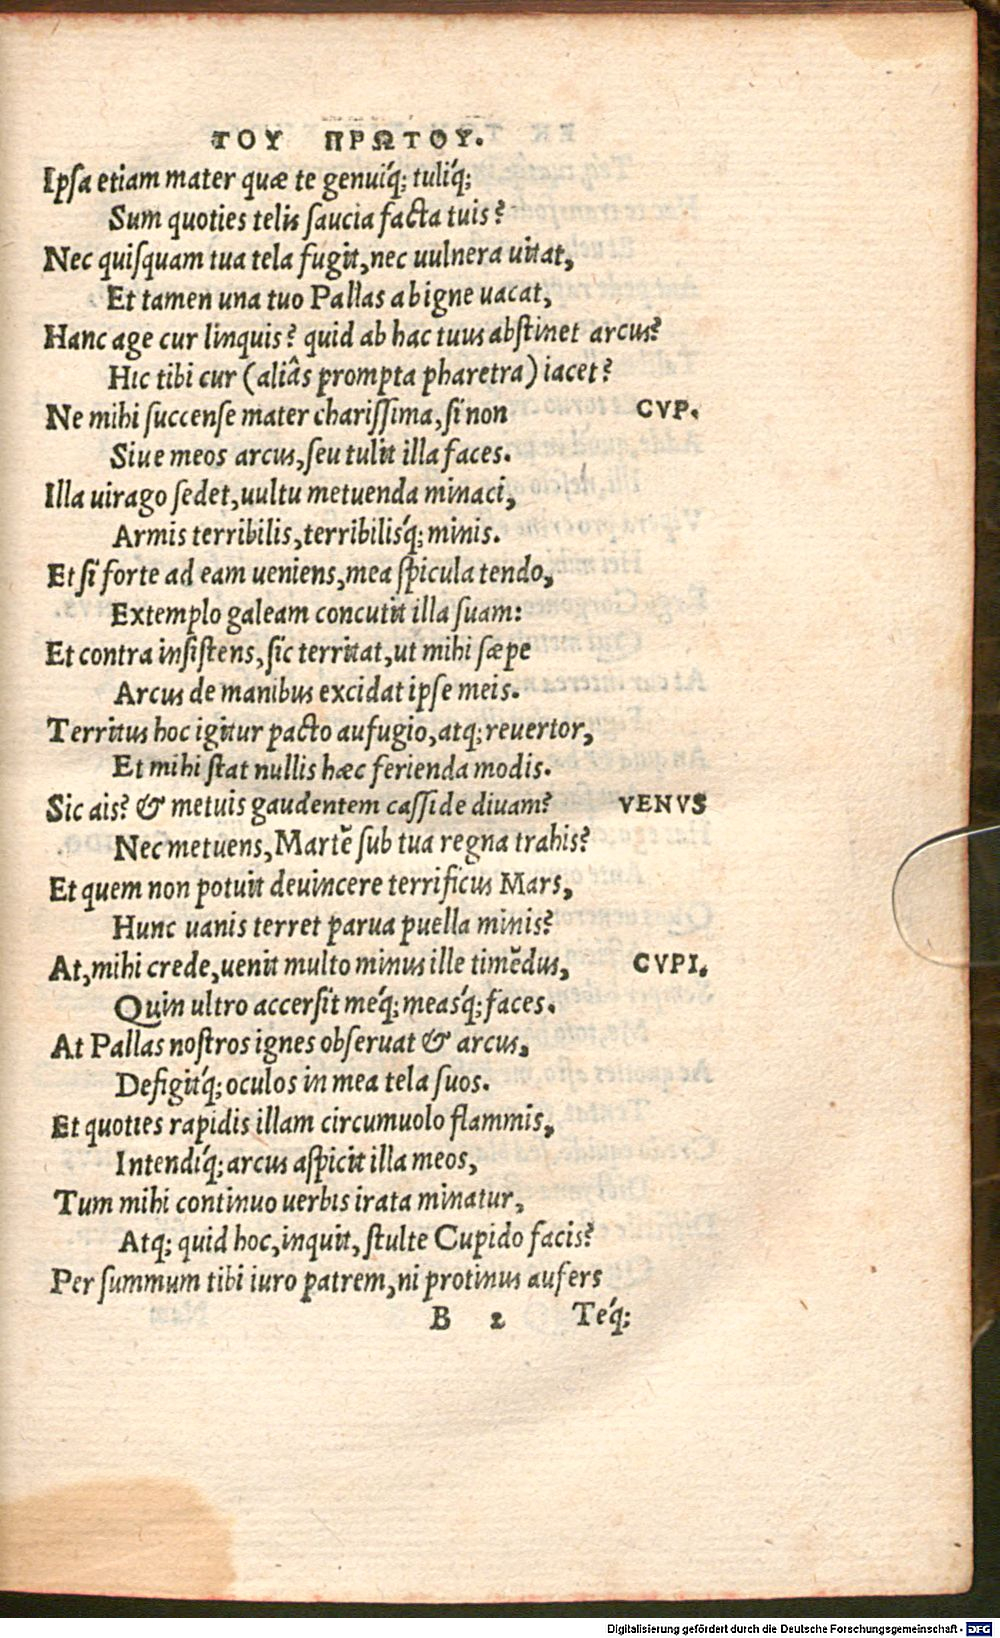 ΤΟΥ ΠΡΩΤΟΥ.
Ipsa etiam mater quæ te genuíq; tulíq;
Sum quoties telis saucia facta tuis?
Nec quisquam tua tela fugit, nec uulnera uitat,
Et tamen una tuo Pallas ab igne uacat,
Hanc age cur linquis? quid ab hac tuus abstinet arcus?
Hic tibi cur (aliâs prompta pharetra) iacet?
Ne mihi succense mater charissima, si non CVP.
Siue meos arcus, seu tulit illa faces.
Illa uirago sedet, uultu metuenda minaci,
Armis terribilis, terribilisq́; minis.
Et si forte ad eam ueniens, mea spicula tendo,
Extemplo galeam concutit illa suam:
Et contra insistens, sic territat, ut mihi sæpe
Arcus de manibus excidat ipse meis.
Territus hoc igitur pacto aufugio, atq; reuertor,
Et mihi stat nullis hæc ferienda modis.
Sic ais? & metuis gaudentem casside diuam? VENVS
Nec metuens, Martē sub tua regna trahis?
Et quem non potuit deuincere terrificus Mars,
Hunc uanis terret parua puella minis?
At, mihi crede, uenit multo minus ille timēdus, CVPI.
Quin ultro accersit méq; measq́; faces.
At Pallas nostros ignes obseruat & arcus,
Defigitq́; oculos in mea tela suos.
Et quoties rapidis illam circumuolo flammis,
Intendíq; arcus aspicit illa meos,
Tum mihi continuo uerbis irata minatur,
Atq; quid hoc, inquit, stulte Cupido facis?
Per summum tibi iuro patrem, ni protinus aufers
B 2 Téq;
Digitalisierung gefördert durch die Deutsche Forschungsgemeinschaft - DFG